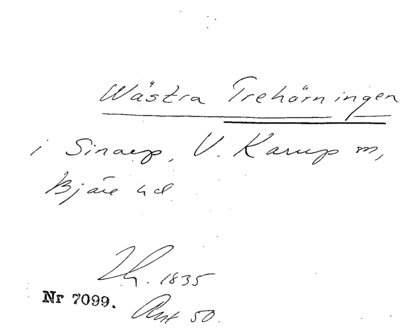 Wästra Trehörningen
i Sinarp, V. Karup sn,
Bjäre hd
Lh. 1835
Nr 7099.
Ant 50.